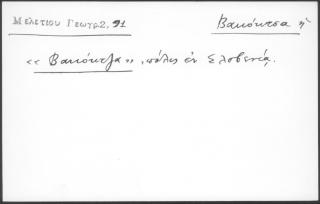 Μελετίου Γεωγρ2, 91 Βακόντσα ἡ
«Βακόντζα», πόλις ἐν Σλοβενίᾳ.